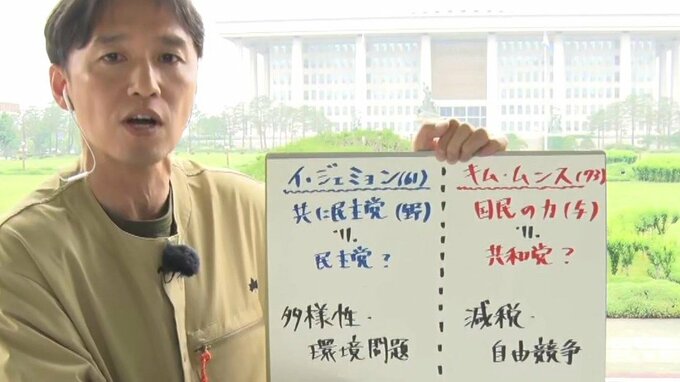 イ・ジェミョン(61)
共に民主党(野)
〃
民主党?
多様性・
環境問題
キム・ムンス(73)
国民の力(与)
〃
共和党?
減税・
自由競争